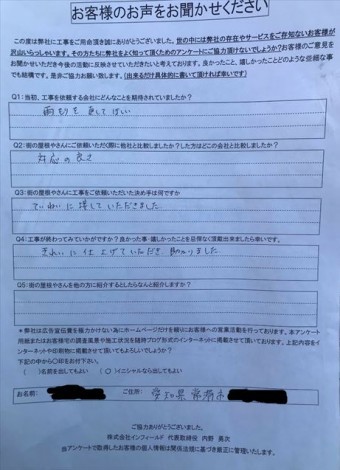 お客様のお声をお聞かせください
この度は弊社に工事をご用命頂き誠にありがとうございました。世の中には弊社の存在やサービスをご存知ないお客様が
沢山いらっしゃいます。その方たちに弊社をよく知って頂くためのアンケートにご協力頂けないでしょうか?お客様のご意見を
お聞かせいただき今後の活動に反映させていただきたいと考えております。良かったこと、嬉しかったことどのような些細な事
でも結構です。是非ご協力お願い致します。(出来るだけ具体的に書いて頂ければ幸いです)
Q1:当初、工事を依頼する会社にどんなことを期待されていましたか?
雨もりを直してほしい
Q2:街の屋根やさんにご依頼いただく際に他社と比較しましたか?した方はどこの会社と比較しましたか?
対応の良さ
Q3:街の屋根やさんに工事をご依頼いただいた決め手は何ですか
ていねいに接していただきました
Q4:工事が終わってみていかがですか?良かった事・嬉しかったことを忌憚なく頂戴出来ましたら幸いです。
きれいに仕上げていただき助かりました
Q5:街の屋根やさんを他の方に紹介するとしたらなんと紹介しますか?
*弊社は広告宣伝費を極力かけない為にホームページだけを頼りにお客様への営業活動を行っております。本アンケート
用紙またはお客様宅の調査風景や施工状況を随時ブログ形式のインターネットに掲載させて頂いております。上記内容をイ
ンターネットや印刷物に掲載させて頂いてもよろしいでしょうか?
下記の中から〇印をお付下さい。
( )名前を出してもよい (〇)イニシャルなら出してもよい
お名前: ご住所: 愛知県常滑市
ご協力ありがとうございました。
株式会社インフィールド 代表取締役 内野 晃次
当アンケートで取得したお客様の個人情報は関係法規に基づき厳正に管理いたします。